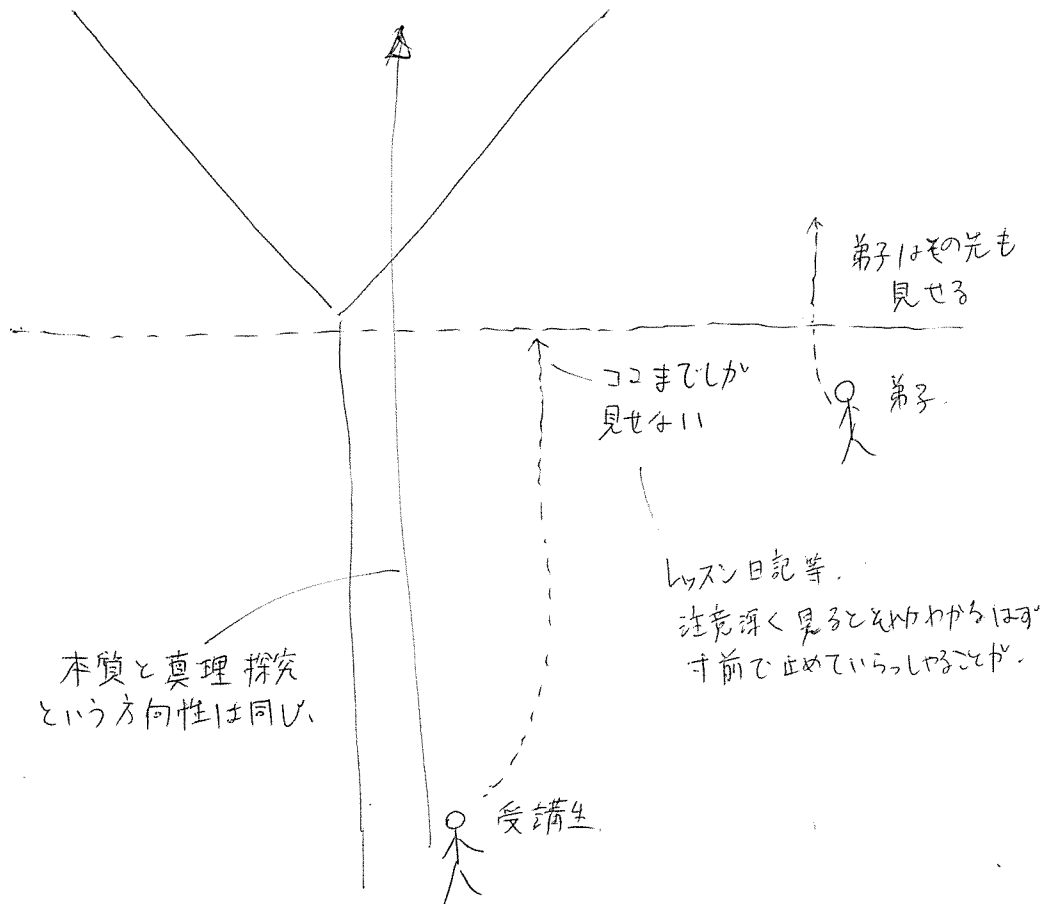 弟子はその先も
見せる
ココまでしか
見せない
弟子.
レッスン日記等.
注意深く見るとそれがわかるはず
寸前で止めていらっしゃることが.
本質と真理探究
という方向性は同じ、
受講生